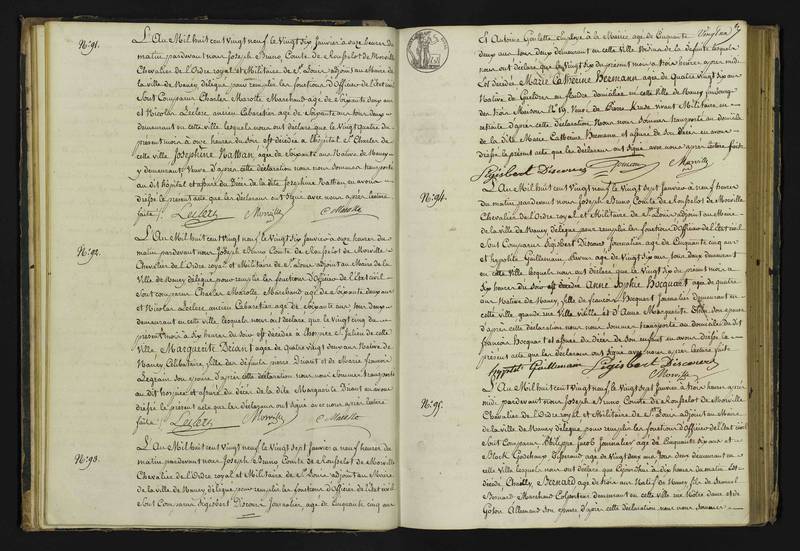 N.º 91.
L'An Mil huit cent vingt neuf le Vingt six Janvier à onze heures du
matin, pardevant nous Joseph Bruno, Comte de Rousselot de Morville
Chevalier de l'Ordre royal et Militaire de St. Louis, adjoint au Maire
de la ville de Nancy délégué pour remplir les fonctions d'Officier de l'état civil
Sont Comparus Charles Marotte Marchand âgé de Soixante deux ans
et Nicolas Leclerc, ancien Cabaretier âgé de Soixante ans tous deux
demeurant en cette ville, lesquels nous ont déclaré que le Vingt quatre du
présent mois à onze heures du soir est décédée à l'hôpital St. Charles de
cette ville Josephine Nathan, âgée de Soixante ans Native de Nancy
y demeurant Veuve d'après cette déclaration nous nous sommes transporté
au dit hôpital et assuré du Décès de la dite Josephine Nathan, en avons
dressé le présent acte que les déclarans ont signé avec nous après lecture
faite. Leclerc Morville C. Marotte
N.º 92.
L'An Mil huit cent Vingt neuf, le Vingt six Janvier à onze heures du
matin pardevant nous Joseph Bruno Comte de Rousselot de Morville
Chevalier de l'Ordre royal et Militaire de St. Louis adjoint au Maire de la Ville
de Nancy délégué pour remplir les fonctions d'Officier de l'état civil
Sont comparus Charles Marotte, Marchand âgé de Soixante deux ans
et Nicolas Leclerc, ancien Cabaretier âgé de Soixante ans tous deux
demeurant en cette ville, lesquels nous ont déclaré que le Vingt cinq du
présent mois à six heures du soir est décédée à l'hospice St. Julien de cette
Ville, Marguerite Driant âgée de Quatre vingt deux ans Native de
Nancy Célibataire, fille des défunts pierre Driant et de Marie Jeanne
son épouse d'après cette déclaration nous nous sommes transporté
au dit hospice et assuré du Décès de la dite Marguerite Driant en avons
dressé le présent acte que les déclarans ont signé avec nous après lecture
faite. Leclerc Morville C. Marotte
N.º 93.
L'An Mil huit cent Vingt neuf, le Vingt sept Janvier à neuf heures du
matin, pardevant nous Joseph Bruno Comte de Rousselot de Morville
Chevalier de l'Ordre royal et Militaire de St. Louis adjoint au Maire
de la Ville de Nancy, délégué pour remplir les fonctions d'Officier de l'état civil
Sont Comparus Sigisbert Discours Journalier, âgé de Cinquante cinq ans
et Antoine Goulette employé à la Mairie, âgé de Cinquante
deux ans tous deux demeurant en cette Ville Voisins de la défunte lesquels
nous ont déclaré que le Vingt six du présent mois à trois heures après midi
est décédée Marie Catherine Hermann âgée de Quatre Vingt six ans
Native de en flandre domiciliée en cette Ville de Nancy faubourg
des trois Maisons N.º 19, Veuve de Kruse vivant Militaire en
retraite d'après cette déclaration Nous nous sommes transporté au domicile
de la dite Marie Catherine Hermann et assuré de son Décès en avons
dressé le présent acte que les déclarans ont Signé avec nous après lecture faite
Sigisbert Discours Morville
N.º 94.
L'An Mil huit cent Vingt neuf, le Vingt sept Janvier à neuf heures
du matin, pardevant nous, Joseph Bruno Comte de Rousselot de Morville
Chevalier de l'Ordre royal et Militaire de St. Louis adjoint au Maire
de la ville de Nancy délégué, pour remplir les fonctions d'Officier de l'état civil
Sont Comparus Sigisbert Discours Journalier âgé de Cinquante cinq ans
et hypolite Guillemain, âgé de Vingt six ans, tous deux demeurant
en cette Ville lesquels nous ont déclaré que le Vingt six du présent mois à
six heures du soir est décédée Anne Sophie Bocquart âgée de quatre
ans Native de Nancy, fille de françois Bocquart Journalier demeurant en
cette ville, grande rue Ville vieille et d'Anne Marguerite son épouse
d'après cette déclaration nous nous sommes transporté au domicile du dit
françois Bocquart et assuré du Décès de son enfant en avons dressé le
présent acte que les déclarans ont signé avec nous après lecture faite
hypolite Guillemain Sigisbert Discours
Morville
N.º 95.
L'An Mil huit cent Vingt neuf, le Vingt sept Janvier à trois heures après
midi pardevant nous Joseph Bruno Comte de Rousselot de Morville
Chevalier de l'Ordre royal et Militaire de St. Louis adjoint au Maire
de la ville de Nancy délégué, pour remplir les fonctions d'Officier de l'état civil
Sont Comparus, Philippe Jacob Journalier âgé de Cinquante six ans et
âgé de Vingt deux ans tous deux demeurant en
cette Ville lesquels nous ont déclaré que aujourd'hui à dix heures du matin est
décédé Bernard âgé de trois ans Natif de Nancy fils de Samuel
Bernard Marchand Colporteur demeurant en cette ville rue Notre Dame et de
Allemand son épouse, d'après cette déclaration nous nous sommes